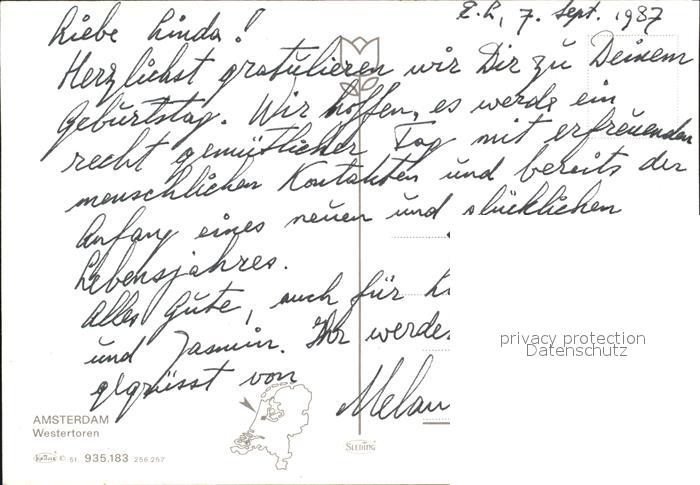 Z.h, 7. Sept. 1987
Liebe Linda!
Herzlichst gratulieren wir Dir zu Deinem
Geburtstag. Wir hoffen, es werde ein
recht gemütlicher Tag mit erfreuenden
menschlichen Kontakten und bereits der
Anfang eines neuen und glücklichen
Lebensjahres.
Alles Gute, auch für
und Jasmin. Ihr werde
gegrüsst von
Melan
AMSTERDAM
Westertoren
KRÜGER © 51. 935.183 256.257
SLEDING
privacy protection
Datenschutz